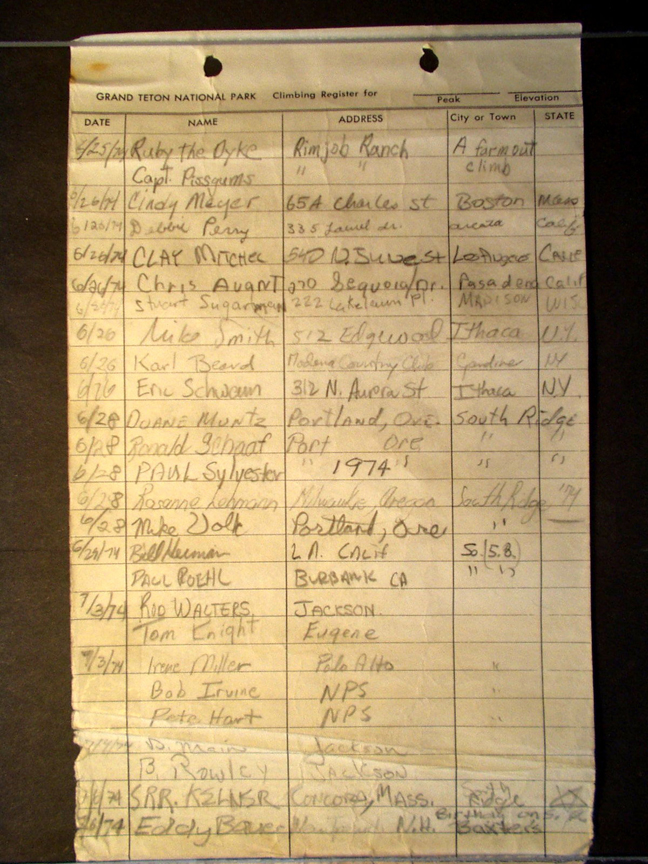 GRAND TETON NATIONAL PARK Climbing Register for Peak Elevation
DATE NAME ADDRESS City or Town STATE
6/25/74 Ruby the Dyke Rimjob Ranch A farm out
Capt. Pissgums " " climb
6/26/74 Cindy Meyer 65A Charles St Boston Mass
6/26/74 Debbie Perry 335 Laurel dr. arcata Calif
6/26/74 CLAY MITCHEL 540 N. St Los Angeles CALIF
6/26/74 Chris Avant 270 Sequoia Dr. Pasadena Calif
Stuart Sugarman 222 Lakelawn Pl. MADISON WIS
6/26 Mike Smith 512 Edgwood Ithaca N.Y.
6/26 Karl Beard Modena Country Club Gardiner NY
6/26 Eric Schwann 312 N. Aurora St Ithaca N.Y.
6/28 DUANE MUNTZ Portland, Ore. South Ridge
6/28 Ronald Schaaf Port Ore " "
6/28 PAUL Sylvester " 1974 " " "
6/28 Rosanne Lehmann Milwaukie Oregon South Ridge '74
6/28 Mike Volk Portland, Ore "
6/29/74 Bill Herman L.A. CALIF So. (S.B.)
PAUL ROEHL BURBANK CA " "
7/3/74 ROD WALTERS JACKSON
Tom Knight Eugene
7/3/74 Irene Miller Palo Alto "
Bob Irvine NPS "
Pete Hart NPS "
D. Main Jackson
B. Rowley JACKSON
74 SRR. KELNER CONCORD, MASS. South Ridge
/74 Eddy Bauer No. N.H. Baxters